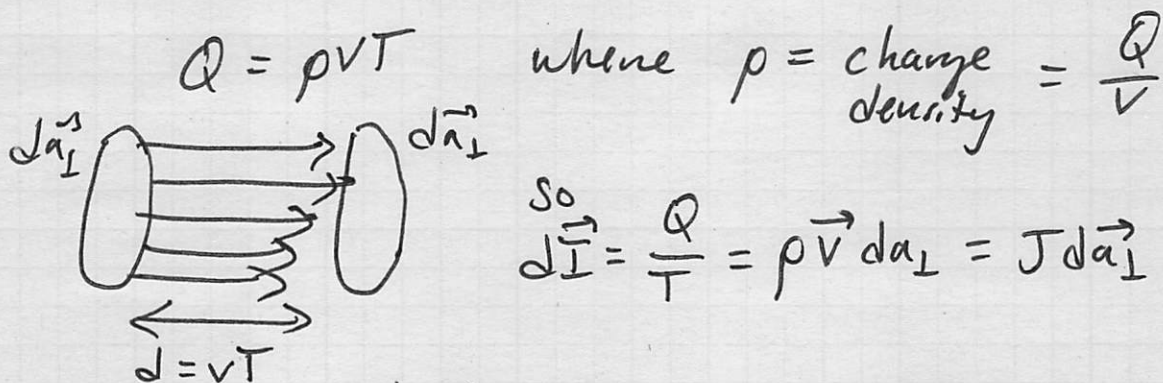 Q = ρvT where ρ = charge density = Q/V
da⃗⊥ da⃗⊥
so
dI⃗ = Q/T = ρv⃗ da⊥ = J da⃗⊥
d = vT